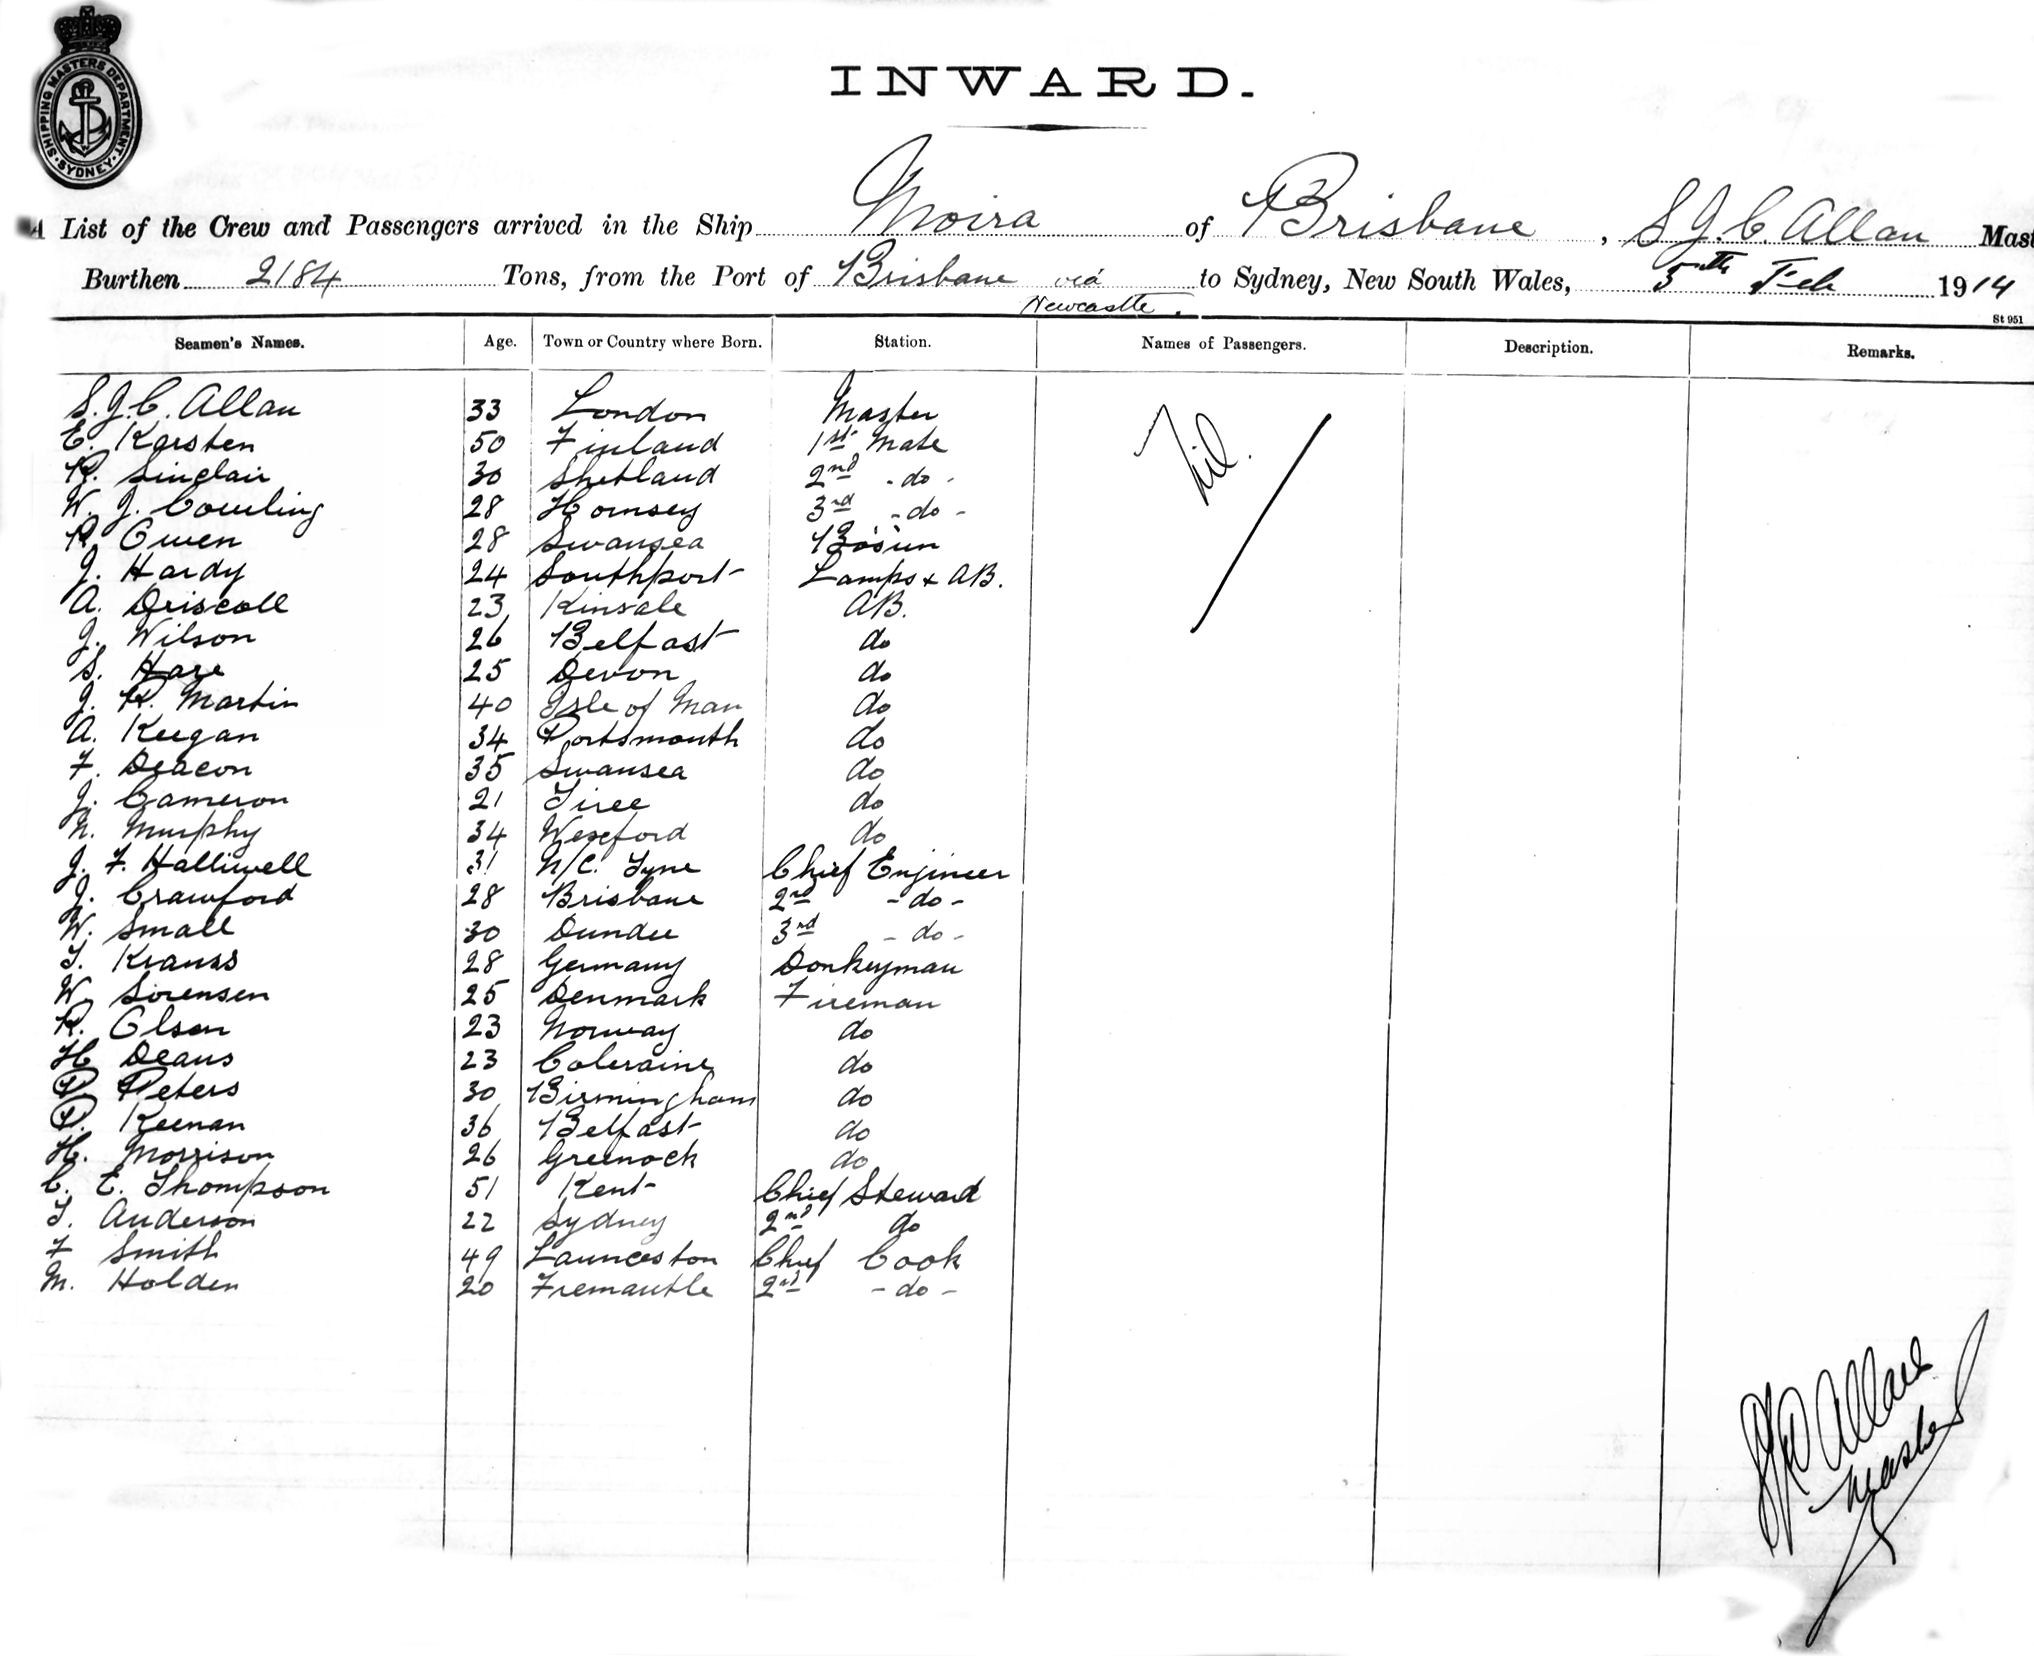 SHIPPING MASTERS DEPARTMENT · SYDNEY ·
INWARD.
A List of the Crew and Passengers arrived in the Ship Moira of Brisbane, S J. C. Allan Mast
Burthen 2184 Tons, from the Port of Brisbane via Newcastle. to Sydney, New South Wales, 5th Feb 1914
St 951
Seamen's Names. Age. Town or Country where Born. Station. Names of Passengers. Description. Remarks.
S. J. C. Allan 33 London Master
Nil.
E. Karsten 50 Finland 1st Mate
R. Sinclair 30 Shetland 2nd - do -
W. J. Cowling 28 Hornsey 3rd - do -
R. Owen 28 Swansea Bosun
J. Hardy 24 Southport Lamps & AB.
A. Driscoll 23 Kinsale AB.
J. Wilson 26 Belfast do
S. Hare 25 Devon do
J. R. Martin 40 Isle of Man do
A. Keegan 34 Portsmouth do
F. Deacon 35 Swansea do
J. Cameron 21 Tiree do
N. Murphy 34 Wexford do
J. F. Halliwell 31 N/C. Tyne Chief Engineer
J. Crawford 28 Brisbane 2nd - do -
W. Small 30 Dundee 3rd - do -
T. Krauss 28 Germany Donkeyman
W. Sorensen 25 Denmark Fireman
R. Olsen 23 Norway do
H Deans 23 Coleraine do
P. Peters 30 Birmingham do
P. Keenan 36 Belfast do
H. Morrison 26 Greenock do
C. E. Thompson 51 Kent Chief Steward
T. Anderson 22 Sydney 2nd do
F Smith 49 Launceston Chief Cook
M. Holden 20 Fremantle 2nd - do -
SJC Allan
Master